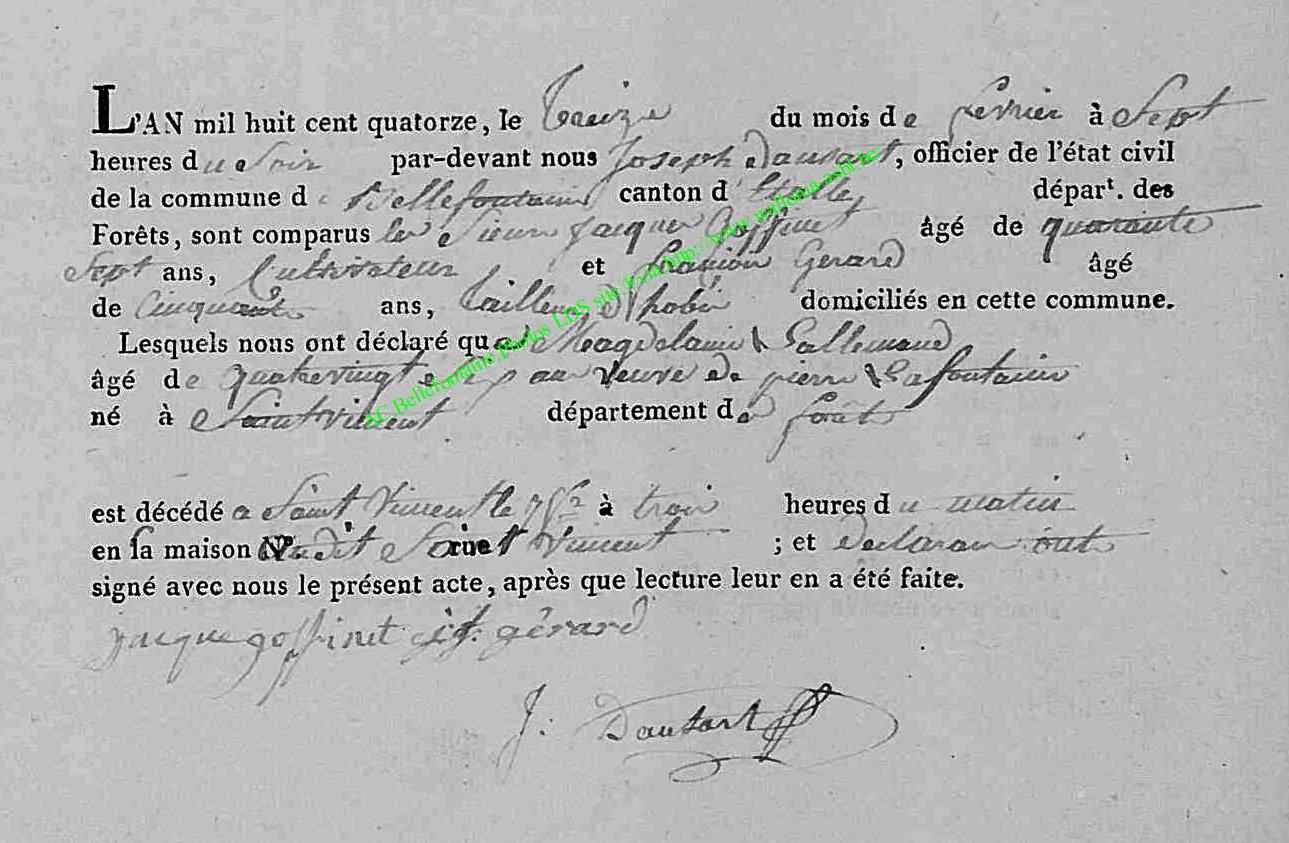 L'AN mil huit cent quatorze, le treize du mois de fevrier à Sept
heures du Soir par-devant nous Joseph Dausart, officier de l'état civil
de la commune de Bellefontaine canton d'Etalle, départ. des
Forêts, sont comparus les Sieurs Jacques Goffinet âgé de quarante
Sept ans, Cultivateur et Gerard âgé
de Cinquante ans, tailleur d'habit domiciliés en cette commune.
Lesquels nous ont déclaré que Magdelaine Lallemand
âgé de quatrevingt ans veuve de pierre Lafontaine
né à Saint vincent département de forets
est décédé a Saint Vincent le à trois heures du matin
en sa maison audit Saint Vincent ; et Declarans ont
signé avec nous le présent acte, après que lecture leur en a été faite.
jacque goffinet gérard
J. Dausart
AC Bellefontaine Photos LDS site via http://www.wallonia-asbl.be/